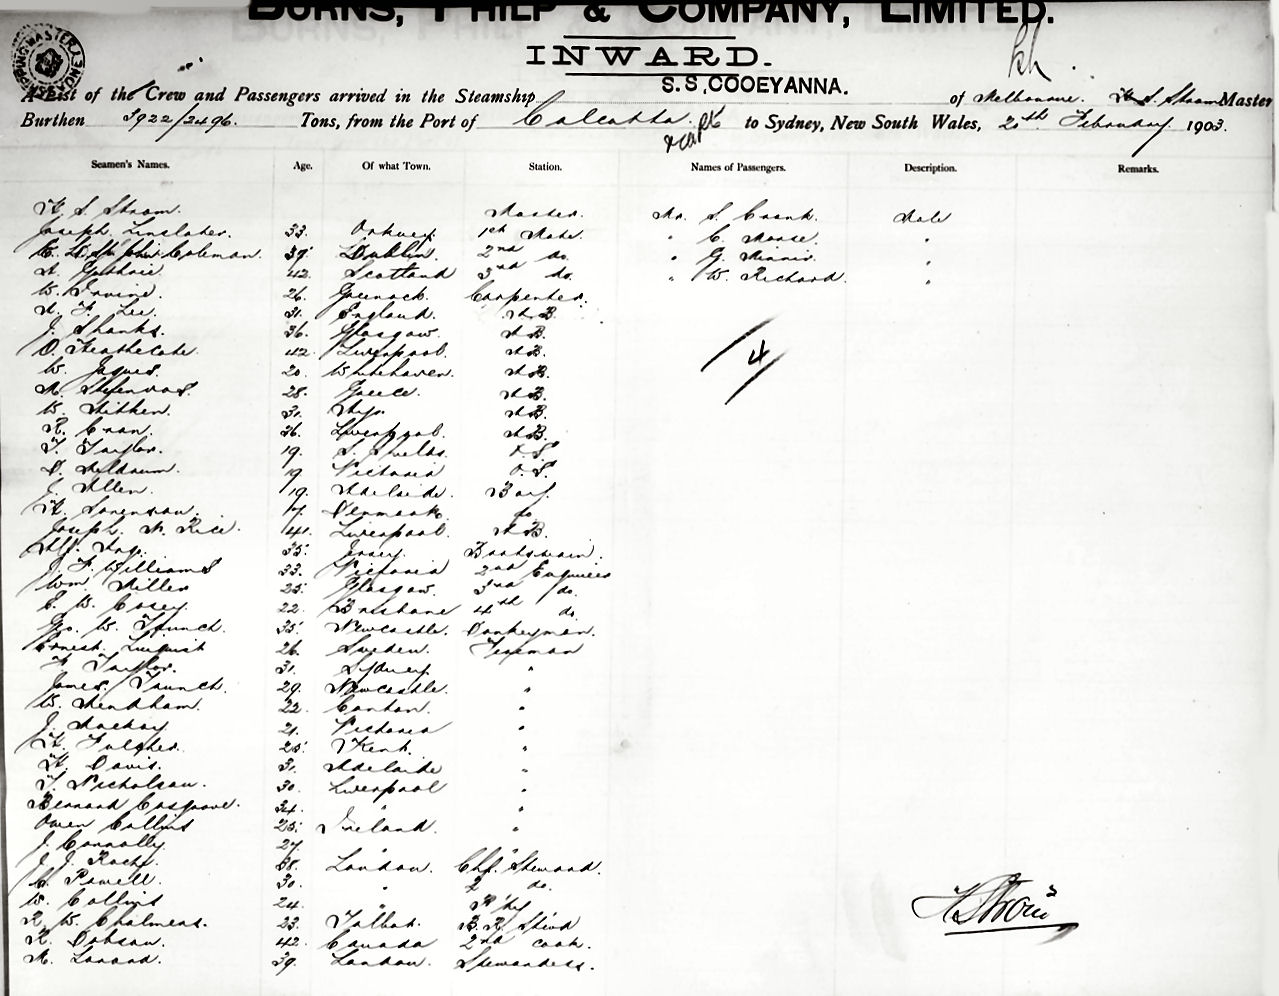 BURNS, PHILP & COMPANY, LIMITED.
INWARD.
S.S. COOEYANNA.
A List of the Crew and Passengers arrived in the Steamship of Melbourne. H. S. Strom Master
Burthen 3922/2496. Tons, from the Port of Calcutta to Sydney, New South Wales, 20th February 1903.
Seamen's Names. Age. Of what Town. Station. Names of Passengers. Description. Remarks.
H. S. Strom. Master. Mr. S. Crank. Male
Joseph Linslater. 33. Orkney 1st Mate. " C. Morse. "
Coleman. 39. Dublin. 2nd do. " G. "
A. Guthrie 42. Scotland 3rd do. " W. Richard. "
W. Irvine. 26. Greenock. Carpenter.
A. F. Lee. 31. England. A.B.
J. Shanks. 36. Glasgow. A.B.
O. Heathcote. 42. Liverpool. A.B.
4
W. Jaques. 20. Whitehaven. A.B.
28. Greece. A.B.
W. Aitken. 31. A.B.
R. Cran. 36. Liverpool. A.B.
T. Taylor. 19. S. Shields. O.S.
19 Victoria O.S.
J. Allen. 19. Adelaide. Boy.
H. Sorenson. 17. Denmark. do
Joseph. A. Rice. 41. Liverpool. A.B.
35. Jersey. Boatswain.
J. F. Williams 33. Victoria 2nd Engineer
Wm Miller 25. Glasgow. 3rd do.
E. W. Casey. 22. Brisbane 4th do.
Geo. W. 35. Newcastle. Donkeyman.
Ernest 26. Sweden. Fireman
F. Taylor. 31. Sydney. "
James 29. Newcastle. "
W. 22. Canton. "
J. Mackay 21. Victoria "
H. Fulcher 25. Kent. "
H. Davis. 31. Adelaide "
T. Nicholson. 30. Liverpool "
Bernard Cosgrove. 34. " "
Owen Collins 25. Ireland. "
J. Connolly 27
J. J. Roche 38. London. Chf. Steward.
C. Powell. 30. " 2 do.
W. Collins 24. "
R. W. Chalmers. 23. Talbot.
R. Dobson. 42. Canada 2nd cook.
39. London. Stewardess.
H S Strom